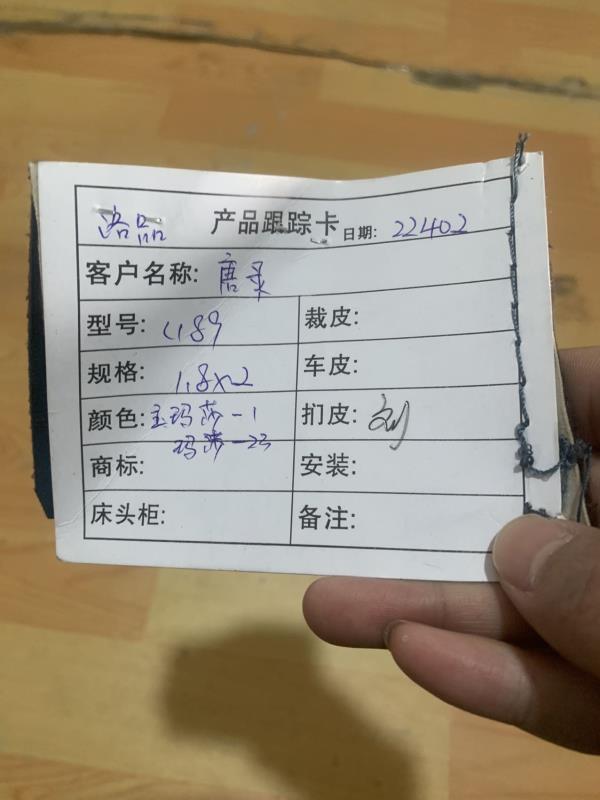 洛品 产品跟踪卡 日期: 22402
客户名称: 唐录
型号: C189 裁皮:
规格: 1.8x2 车皮:
颜色: 主玛莎-1 扪皮: 刘
玛莎-23
商标: 安装:
床头柜: 备注: